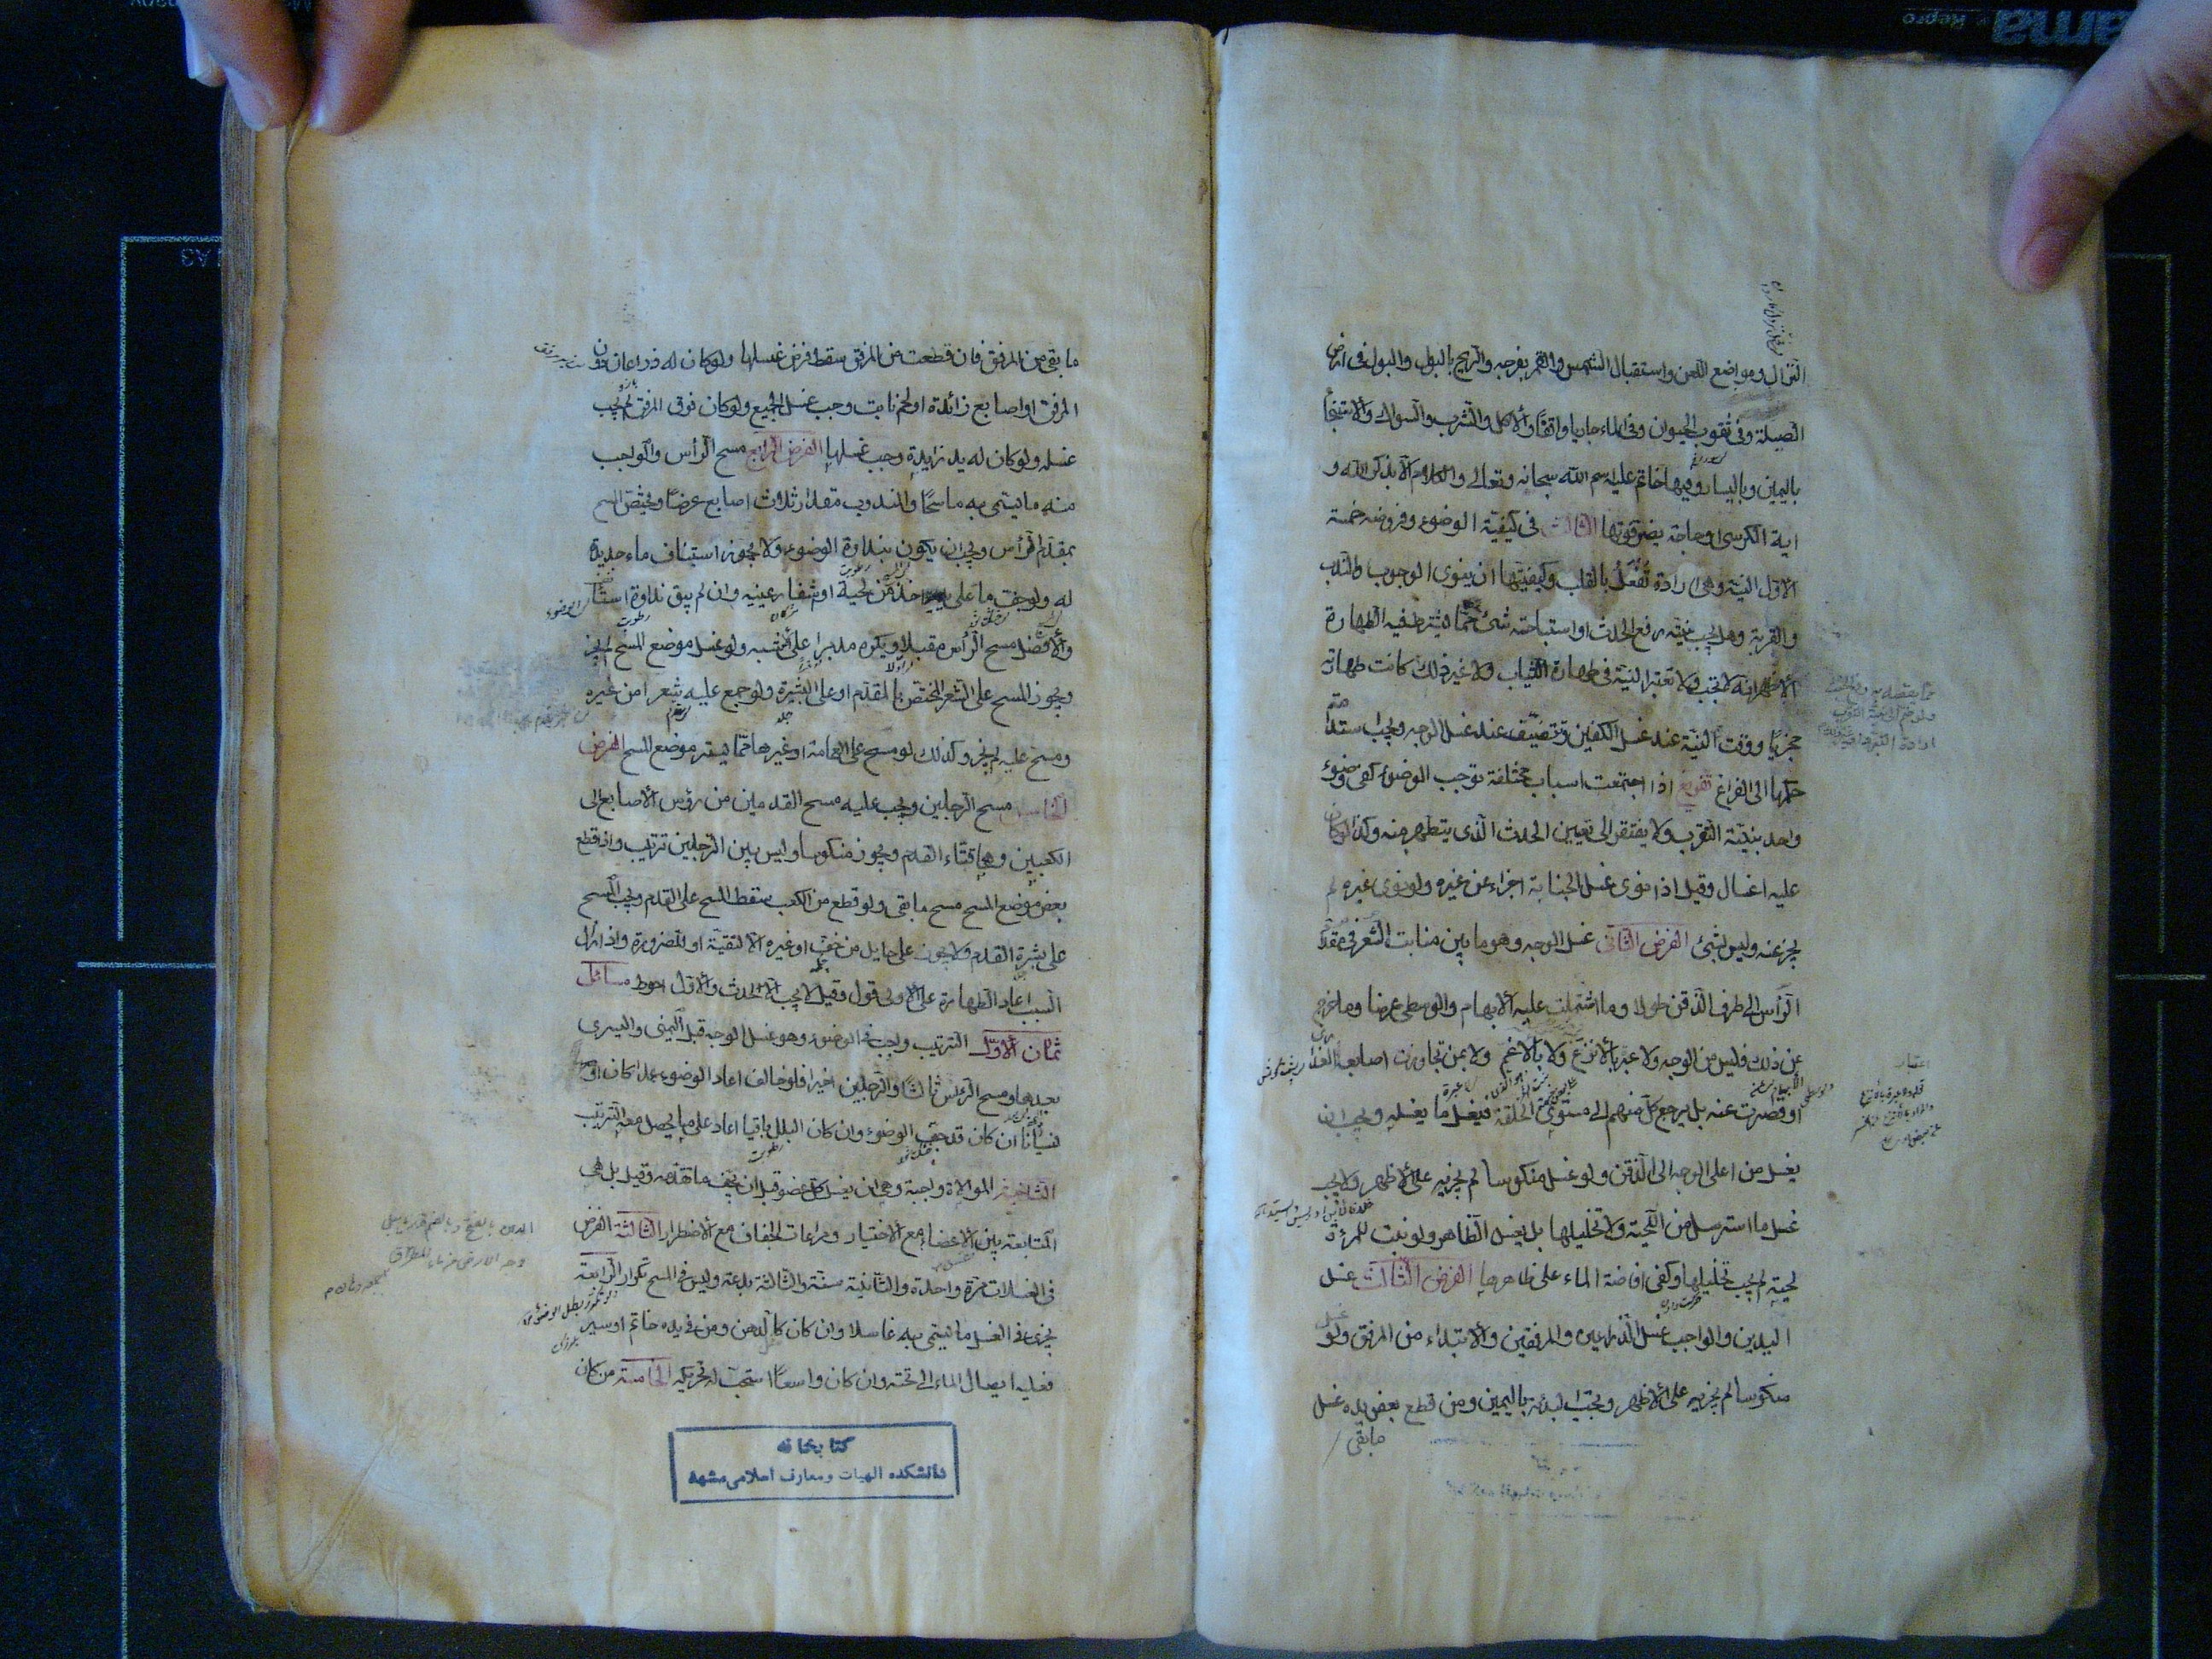 النزال ومواضع اللعن واستقبال الشمس والقمر بفرجه والريح بالبول والبول فى ارض
الصلبة وفى ثقوب الحيوان وفى الماء جاريا وواقفا والاكل والشرب والسواك والاستنجا
باليمين وباليسار وفيها خاتم عليه اسم الله سبحانه وتعالى والكلام الا بذكر الله و
اية الكرسى او حاجة يضر فوتها الثالث فى كيفية الوضوء وفروضه خمسة
الاول النية وهى ارادة تفعل بالقلب وكيفيتها ان ينوى الوجوب والندب
والقربة وهل يجب نية رفع الحدث او استباحة شئ مما يشترط فيه الطهارة
الاظهر انه لا تجب ولا تعتبر النية فى طهارة الثياب ولا غير ذلك كانت طهاته
ووقت النية عند غسل الكفين وتتضيق عند غسل الوجه ويجب استدامة
حكمها الى الفراغ تفريع اذا اجتمعت اسباب مختلفة توجب الوضوء كفى وضوء
واحد بنية التقرب ولا يفتقر الى تعيين الحدث الذى يتطهر منه وكذا لو كان
عليه اغسال وقيل اذا نوى غسل الجنابة اجزاء عن غيره ولو نوى غيره لم
يجز عنه وليس بشئ الفرض الثانى غسل الوجه وهو ما بين منابت الشعر فى مقدم
الرأس الى طرف الذقن طولا وما اشتملت عليه الابهام والوسطى عرضا وما خرج
عن ذلك فليس من الوجه ولا عبرة بالانزع ولا بالاغم ولا بمن تجاوزت اصابعه العذار
او قصرت عنه بل يرجع كل منهم الى مستوى الخلقة فيغسل ما يغسله ويجب ان
يغسل من اعلى الوجه الى الذقن ولو غسل منكوسا لم يجزيه على الاظهر ولا يجب
غسل ما استرسل من اللحية ولا تخليلها بل يغسل الظاهر ولو نبت للمرءة
لحية لم يجب تخليلها وكفى افاضة الماء على ظاهرها الفرض الثالث غسل
اليدين والواجب غسل الذراعين والمرفقين والابتداء من المرفق ولو غسل
منكوسا لم يجزيه على الاظهر ويجب البدئة باليمين ومن قطع بعض يده غسل
مابقى
ما بقى من المرفق فان قطعت من المرفق سقط فرض غسلها ولو كان له ذراعان دون
المرفق او اصابع زائدة او لحم نابت وجب غسل الجميع ولو كان فوق المرفق لم يجب
غسله ولو كان له يد زايدة وجب غسلها الفرض الرابع مسح الرأس والواجب
منه ما يسمى به ماسحا والمندوب مقدار ثلاث اصابع عرضا ويختص المسح
بمقدم الرأس ويجب ان يكون بنداوة الوضوء ولا يجوز استيناف ماء جديد
له ولو جف ما على اخذ من لحيته او اشفار عينيه وان لم يبق نداوة استأنف
والافضل مسح الرأس مقبلا ويكره مدبرا على الاشبه ولو غسل موضع المسح لم يجز
ويجوز المسح على الشعر المختص بالمقدم او على البشرة ولو جمع عليه شعرا من غيره
ومسح عليه لم يجز وكذلك لو مسح على العمامة او غيرها مما يستر موضع المسح الفرض
الخامس مسح الرجلين ويجب عليه مسح القدمين من رؤس الاصابع الى
الكعبين وهما قبتا القدم ويجوز منكوسا وليس بين الرجلين ترتيب واذا قطع
بعض موضع المسح مسح ما بقى ولو قطع من الكعب سقط المسح على القدم ويجب المسح
على بشرة القدم ولا يجوز على حايل من خف او غيره الا لتقية او للضرورة واذا زال
السبب اعاد الطهارة على قول وقيل لا يجب الا لحدث والاول احوط مسائل
ثمان الاولى الترتيب واجب فى الوضوء وهو غسل الوجه قبل اليمنى واليسرى
بعدها ومسح الرأس ثالثا والرجلين اخيرا فلو خالف اعاد الوضوء عمدا كان او
نسيانا ان كان قد جف الوضوء وان كان البلل باقيا اعاد على ما يحصل معه الترتيب
الثانية الموالاة واجبة وهى ان يغسل كل عضو قبل ان يجف ما تقدمه وقيل بل هى
المتابعة بين الاعضاء مع الاختيار ومراعات الجفاف مع الاضطرار الثالثة الفرض
فى الغسلات مرة واحدة والثانية سنة والثالثة بدعة وليس فى المسح تكرار الرابعة
يجزى فى الغسل ما يسمى به غاسلا وان كان كالدهن ومن فى يده خاتم او سير
فعليه ايصال الماء الى تحته وان كان واسعا استحب له تحريكه الخامسة من كان
كتابخانه
دانشکده الهیات ومعارف اسلامی مشهد